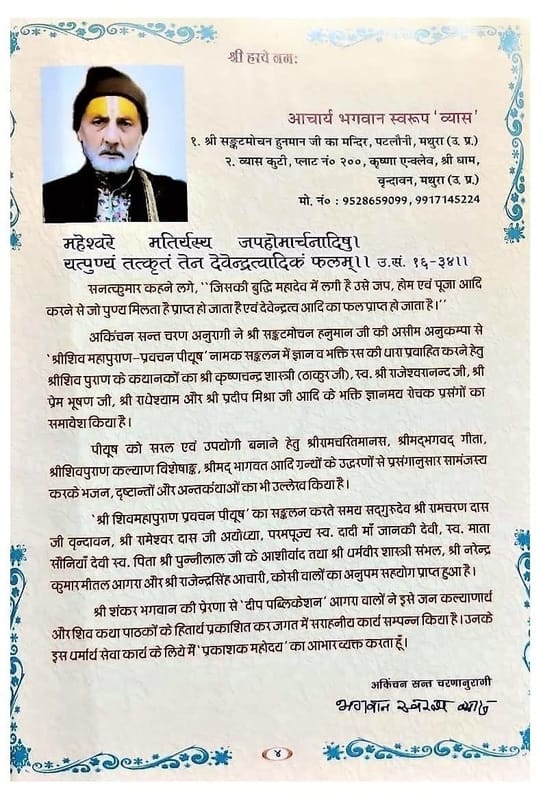 श्री हरये नमः
आचार्य भगवान स्वरूप 'व्यास'
१. श्री सङ्कटमोचन हुनमान जी का मन्दिर, पटलौनी, मथुरा (उ. प्र.)
२. व्यास कुटी, प्लाट नं० २००, कृष्णा एन्क्लेव, श्री धाम,
वृन्दावन, मथुरा (उ. प्र.)
मो. नं० : 9528659099, 9917145224
महेश्वरे मतिर्यस्य जपहोमार्चनादिषु।
यत्पुण्यं तत्कृतं तेन देवेन्द्रत्वादिकं फलम्।। उ.सं. १६-३४।।
सनत्कुमार कहने लगे, ''जिसकी बुद्धि महादेव में लगी है उसे जप, होम एवं पूजा आदि
करने से जो पुण्य मिलता है प्राप्त हो जाता है एवं देवेन्द्रत्व आदि का फल प्राप्त हो जाता है।''
अकिंचन सन्त चरण अनुरागी ने श्री सङ्कटमोचन हनुमान जी की असीम अनुकम्पा से
'श्रीशिव महापुराण-प्रवचन पीयूष' नामक सङ्कलन में ज्ञान व भक्ति रस की धारा प्रवाहित करने हेतु
श्रीशिव पुराण के कथानकों का श्री कृष्णचन्द्र शास्त्री (ठाकुर जी), स्व. श्री राजेश्वरानन्द जी, श्री
प्रेम भूषण जी, श्री राधेश्याम और श्री प्रदीप मिश्रा जी आदि के भक्ति ज्ञानमय रोचक प्रसंगों का
समावेश किया है।
पीयूष को सरल एवं उपयोगी बनाने हेतु श्रीरामचरितमानस, श्रीमद्भगवद् गीता,
श्रीशिवपुराण कल्याण विशेषाङ्क, श्रीमद् भागवत आदि ग्रन्थों के उद्धरणों से प्रसंगानुसार सामंजस्य
करके भजन, दृष्टान्तों और अन्तर्कथाओं का भी उल्लेख किया है।
'श्री शिवमहापुराण प्रवचन पीयूष' का सङ्कलन करते समय सद्गुरुदेव श्री रामचरण दास
जी वृन्दावन, श्री रामेश्वर दास जी अयोध्या, परमपूज्य स्व. दादी माँ जानकी देवी, स्व. माता
सौनियाँ देवी स्व. पिता श्री पुन्नीलाल जी के आशीर्वाद तथा श्री धर्मवीर शास्त्री संभल, श्री नरेन्द्र
कुमार मीतल आगरा और श्री राजेन्द्रसिंह आचारी, कोसी वालों का अनुपम सहयोग प्राप्त हुआ है।
श्री शंकर भगवान की प्रेरणा से 'दीप पब्लिकेशन' आगरा वालों ने इसे जन कल्याणार्थ
और शिव कथा पाठकों के हितार्थ प्रकाशित कर जगत में सराहनीय कार्य सम्पन्न किया है। उनके
इस धर्मार्थ सेवा कार्य के लिये मैं 'प्रकाशक महोदय' का आभार व्यक्त करता हूँ।
अकिंचन सन्त चरणानुरागी
भगवान स्वरूप व्यास
४